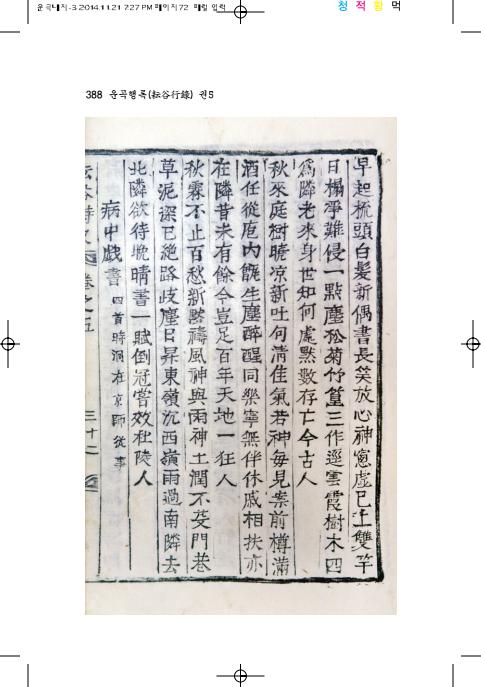 운곡대지-3 2014.11.21 7:27 PM 페이지72 매킬 입력
청 적 황 먹
388 운곡행록(耘谷行錄) 권5
早起梳頭白髮新偶書長笑放心神窓虛已上雙竿
日榻淨難侵一點塵松菊竹篁三作逕雲霞樹木四
爲隣老來身世知何處黙數存亡今古人
秋來庭樹晩凉新吐句淸佳氣若神每見案前樽滿
酒任從庖內甑生塵醉醒同樂寧無伴休戚相扶亦
在隣昔未有餘今豈足百年天地一狂人
秋霖不止百愁新黙禱風神與雨神土潤不芟門巷
草泥深已絶路歧塵日昇東嶺沉西嶺雨過南隣去
北隣欲待晩晴書一賦倒冠嘗效杜陵人
病中戱書 四首時泂在京師從事
卷之五
三十二